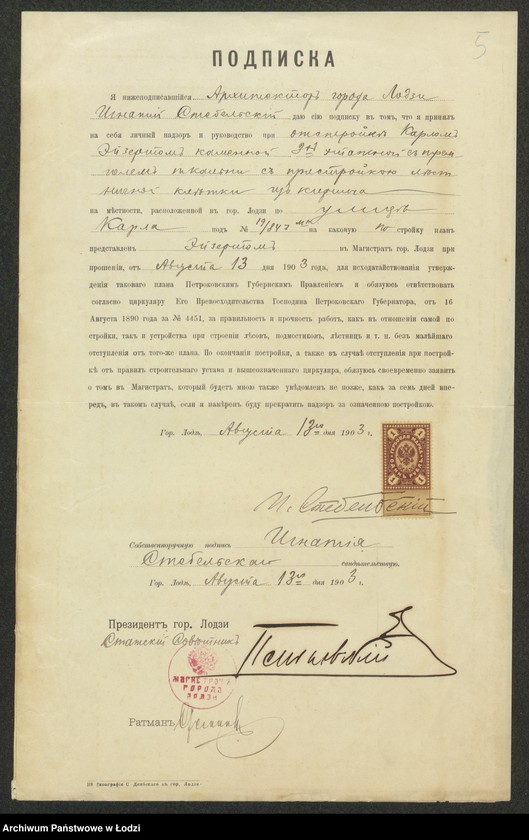 5
ПОДПИСКА
Я нижеподписавшійся Архитекторъ города Лодзи
Игнатій Стебельскій даю сію подписку въ томъ, что я принялъ
на себя личный надзоръ и руководство при отстройкѣ Карломъ
Эйзертомъ каменной этажной съ
ткальни съ пристройкою лѣст
ничной клѣтки
на мѣстности, расположенной въ гор. Лодзи по улицѣ
Карла подъ № на каковую по стройку планъ
представленъ Эйзертомъ въ Магистратъ гор. Лодзи при
прошеніи, отъ Августа 13 дня 1903 года, для исходатайствованія утверж-
денія таковаго плана Петроковскимъ Губернскимъ Правленіемъ и обязуюсь отвѣтствовать
согласно циркуляру Его Превосходительства Господина Петроковскаго Губернатора, отъ 16
Августа 1890 года за № 4451, за правильность и прочность работъ, какъ въ отношеніи самой по
стройки, такъ и устройства при строеніи лѣсовъ, подмостковъ, лѣстницъ и т. п. безъ малѣйшаго
отступленія отъ того-же плана. По окончаніи постройки, а также въ случаѣ отступленія при построй-
кѣ отъ правилъ строительнаго устава и вышеозначеннаго циркуляра, обязуюсь своевременно заявить
о томъ въ Магистратъ, который будетъ мною также увѣдомленъ не позже, какъ за семь дней впе-
редъ, въ такомъ случаѣ, если я намѣренъ буду прекратить надзоръ за означенною постройкою.
Гор. Лодзь, Августа 13го дня 1903 г.
И. Стебельскій
Собственноручную подпись Игнатія
Стебельскаго свидѣтельствую.
Гор. Лодзь, Августа 13го дня 1903 г.
Президентъ гор. Лодзи
Статскій Совѣтникъ
МАГИСТРАТЪ
ГОРОДА
ЛОДЗИ
Ратманъ
Типографія С. Дембскаго въ гор. Лодзи
Archiwum Państwowe w Łodzi